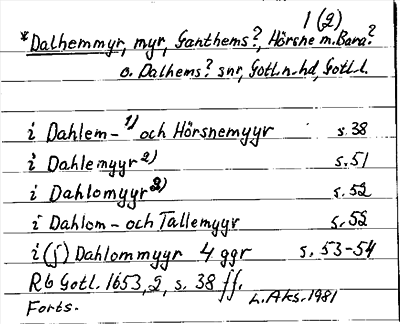 1(2)
*Dalhemmyr, myr, Ganthems?, Hörsne m. Bara?
o. Dalhems? snr, Gotl.n.hd, Gotl.l.
i Dahlem- 1) och Hörsnemyyr s. 38
i Dahlemyyr 2) s. 51
i Dahlomyyr 2) s. 52
i Dahlom- och Tallemyyr s. 52
i (j) Dahlommyyr 4 ggr s. 53-54
Rb Gotl. 1653, 2, s. 38 ff.
Forts. L. Aks. 1981